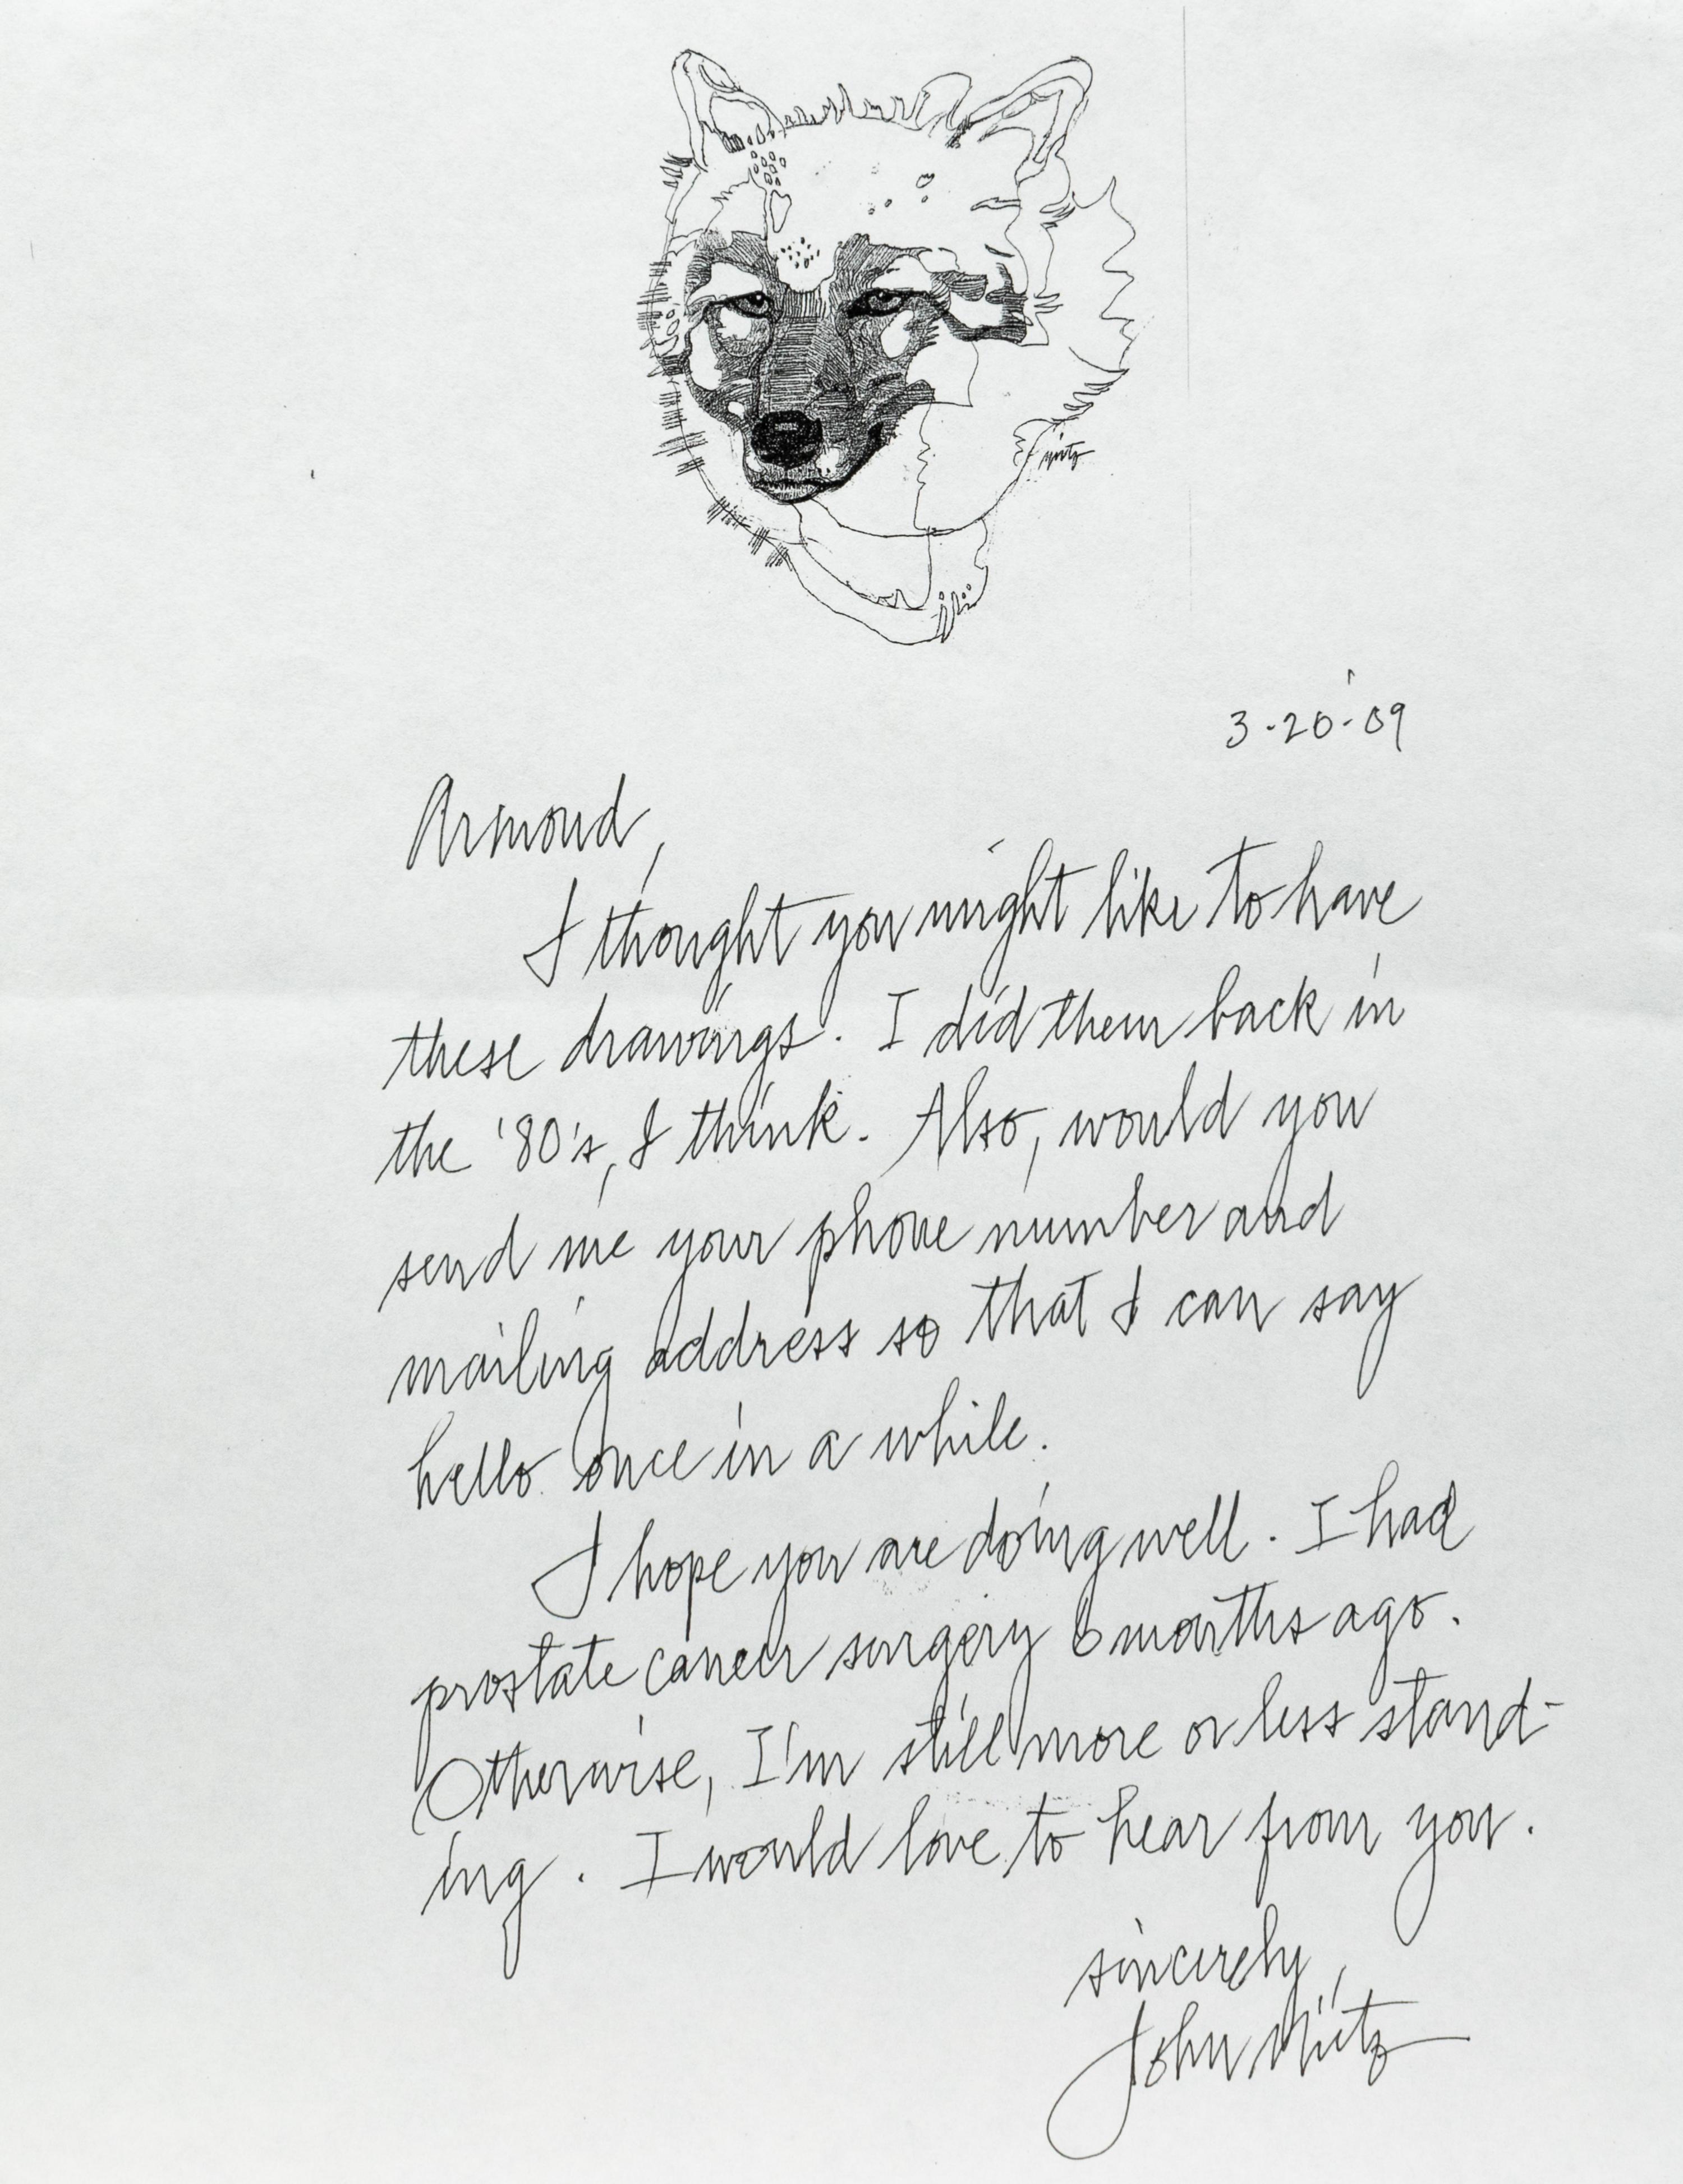 3-20-'09
Armond,
I thought you might like to have
these drawings. I did them back in
the '80's, I think. Also, would you
send me your phone number and
mailing address so that I can say
hello once in a while.
I hope you are doing well. I had
prostate cancer surgery 6 months ago.
Otherwise, I'm still more or less stand-
ing. I would love to hear from you.
sincerely,
John